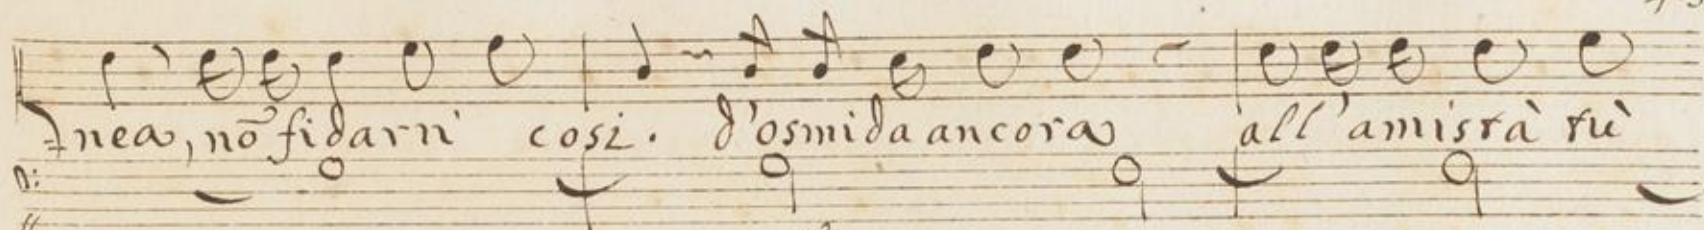 Enea, nõ fidarti così. d'osmida ancora all'amistà tù